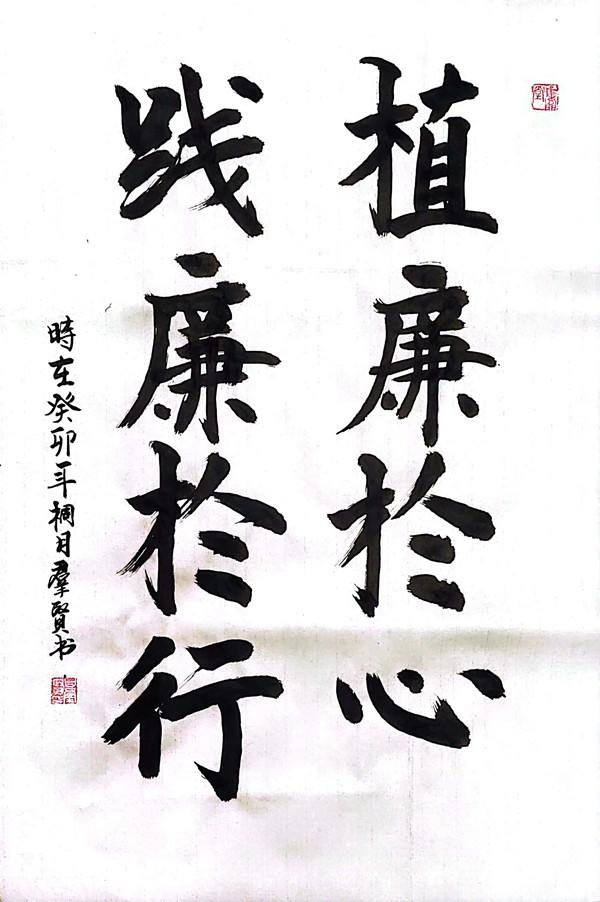 植廉於心
践廉於行
時在癸卯年桐月羣賢书